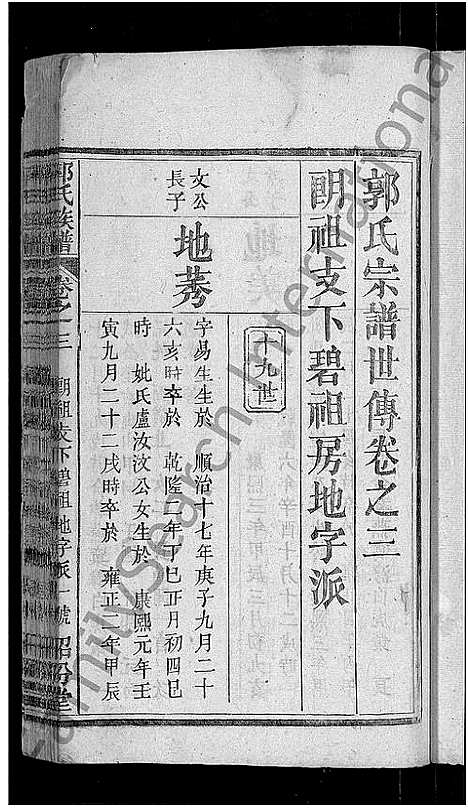 郭氏宗譜世傳卷之三
朙祖支下碧祖房地字派
十九世
文公長子
地莠
字易生生於 順治十七年庚子九月二十
六亥時卒於 乾隆二年丁巳正月初四巳
時 妣氏盧汝汶公女生於 康熙元年壬
寅九月二十二戌時卒於 雍正二年甲辰
郭氏族譜 卷之三 朙祖支下碧祖地字派 一號
FamilySearch International